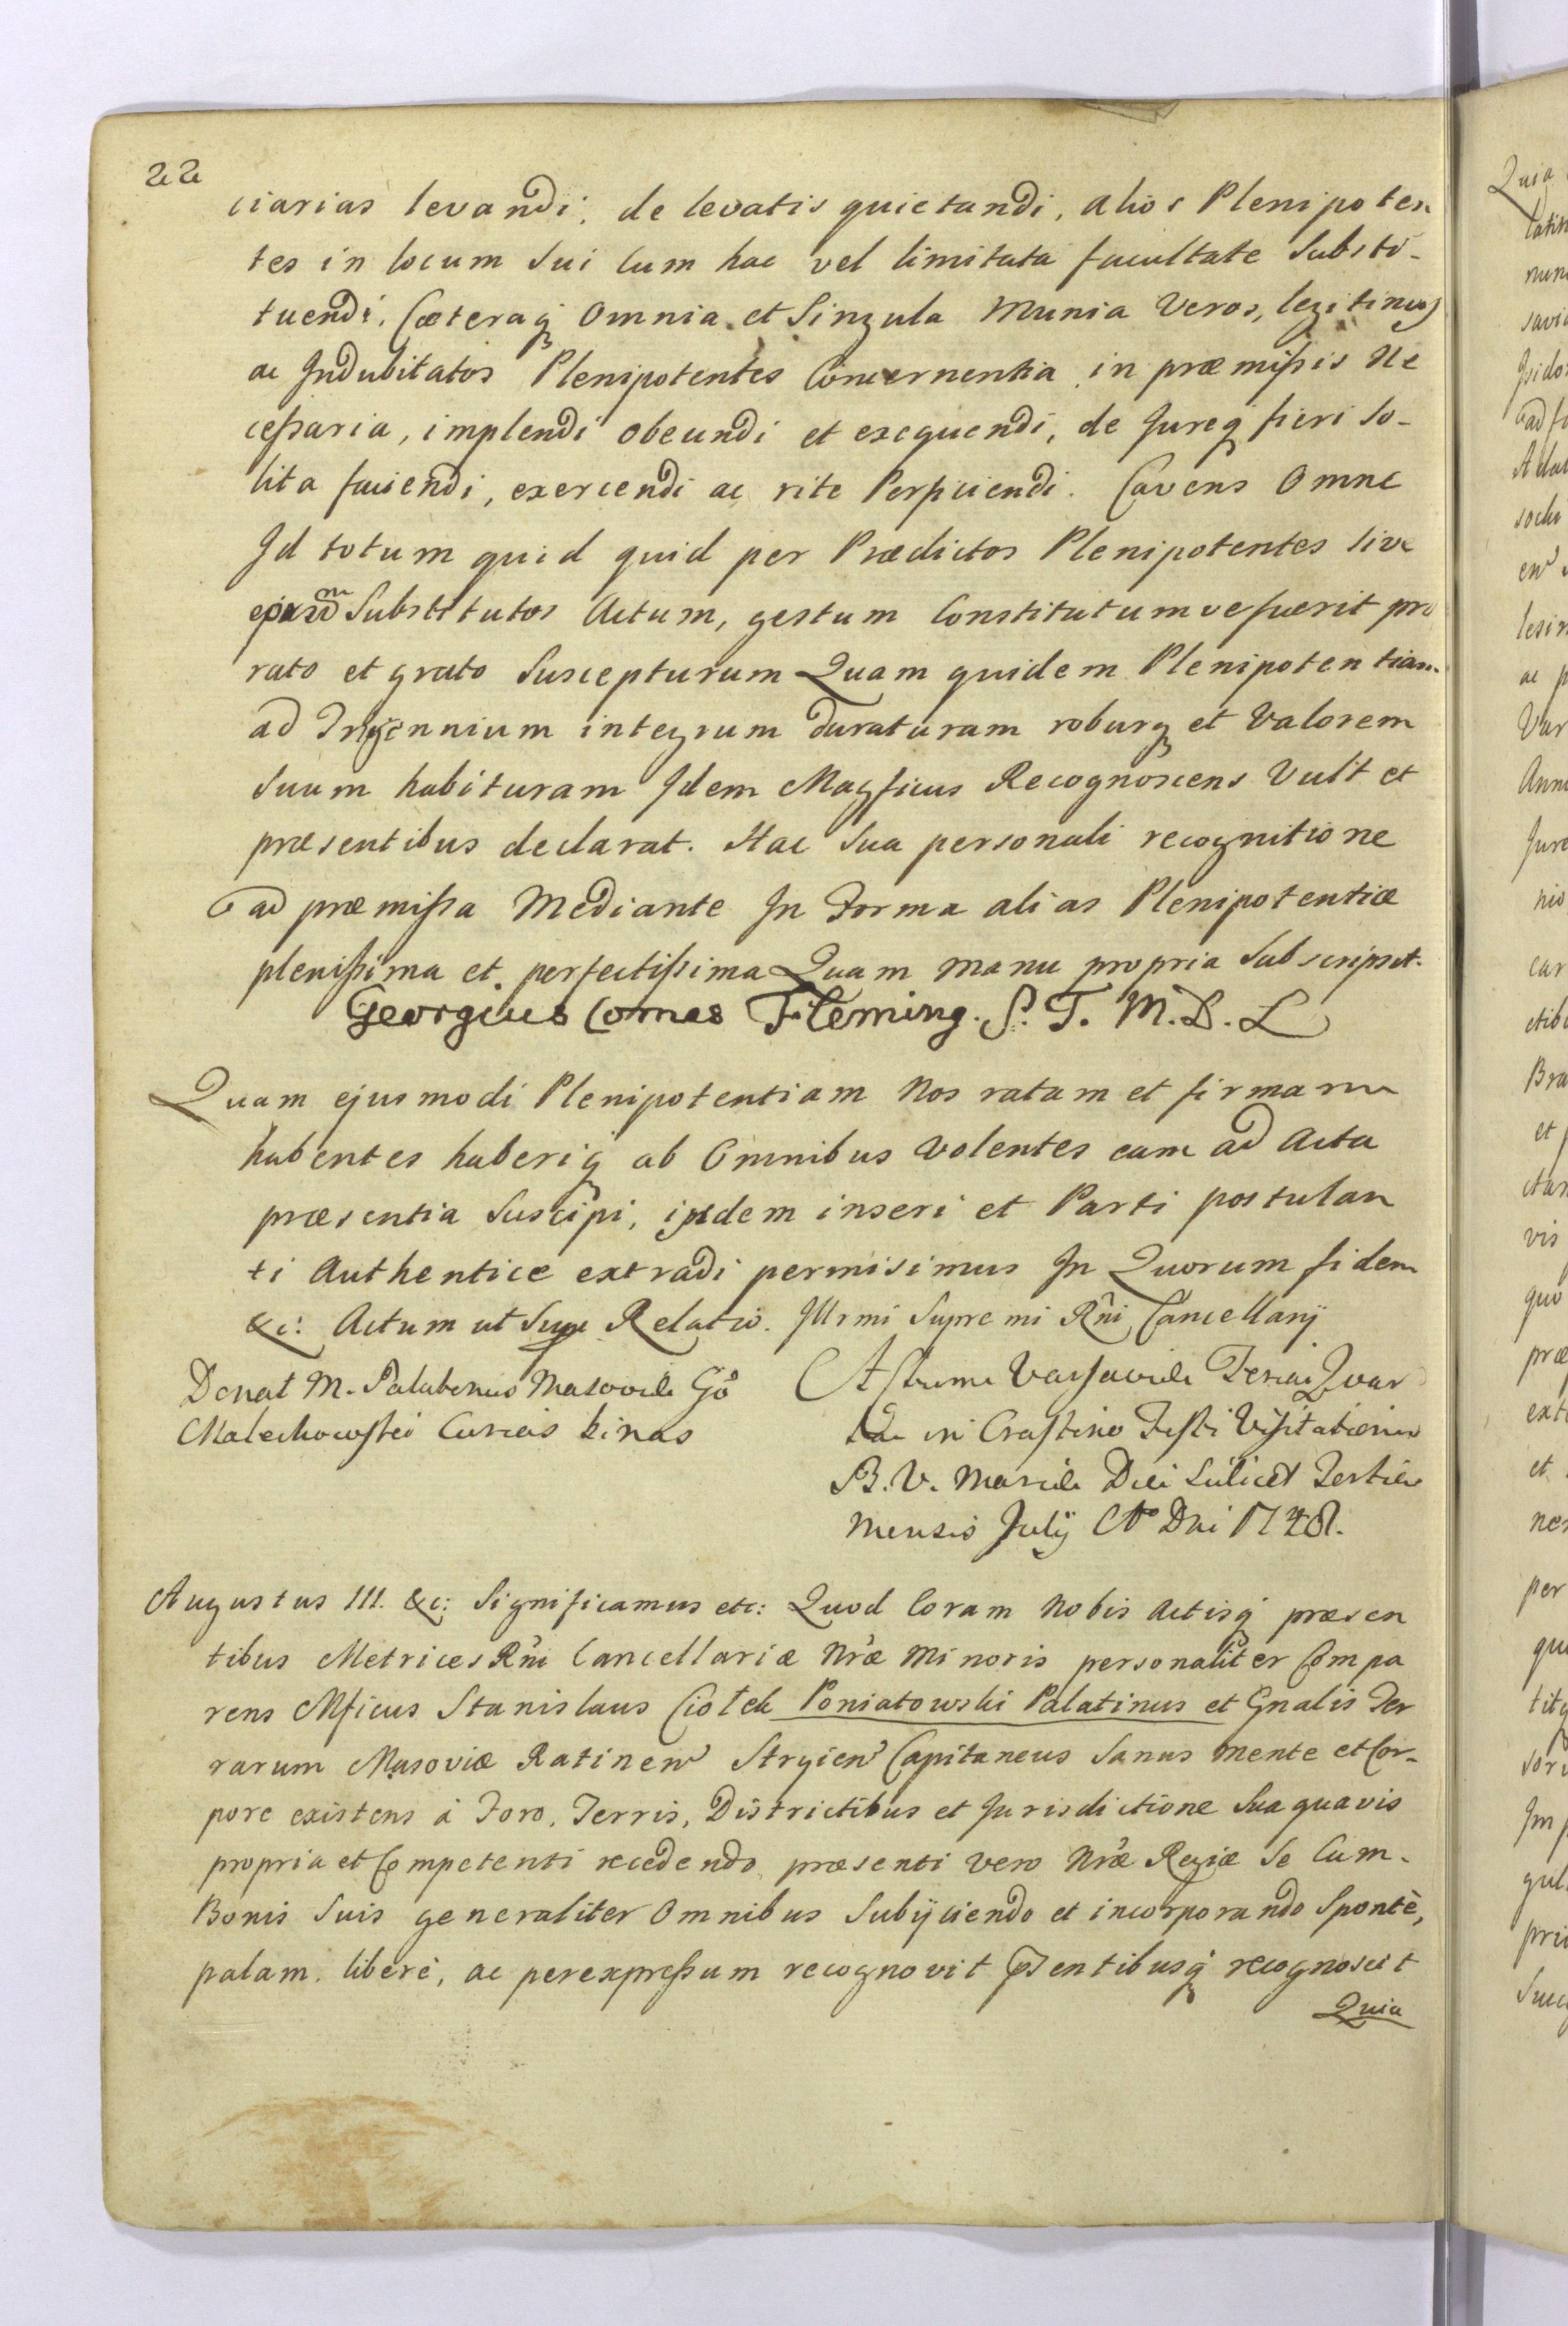 22
ciarias levandi, de levatis quietandi, alios Plenipoten
tes in locum Sui Cum hac vel limitata facultate Substi-
tuendi. Cœteraq Omnia et Singula Munia Veros, legitimos
ac Indubitatos Plenipotentes Concernentia in præmissis Ne
cessaria, implendi obeundi et exequendi, de Jureq fieri So-
lita faciendi, exercendi ac rite Perficiendi. Cavens Omne
Id totum quid quid per Prædictos Plenipotentes sive
Substitutos Actum, gestum Constitutumve fuerit pro
rato et grato Suscepturum Quam quidem Plenipotentiam
ad Tryennium integrum duraturam roburq et Valorem
Suum habituram Idem Magficus Recognoscens Vult et
præsentibus declarat. Hac Sua personali recognitione
ad præmissa Mediante In Forma alias Plenipotentiæ
plenissima et perfectissima Quam manu propria Subscripsit.
Georgius Comes Fleming. S. T. M. D. L
Quam ejusmodi Plenipotentiam Nos ratam et firmam
habentes haberiq ab Omnibus Volentes eam ad Acta
præsentia Suscipi, ijsdem inseri et Parti postulan
ti Authentice extradi permisimus In Quorum fidem
&c: Actum ut Supra Relatio. Illrmi Supremi Rñi Cancellarij
Donat M. Palatinus Masoviæ Gõ
Malechowski Curiæis
Actum Varsaviæ Feria Quar
ta in Crastino Festi Visitationis
B. V. Mariæ Die Scilicet Tertia
Mensis Julij Aº Dni 1748.
Augustus III. &c: Significamus etc: Quod Coram Nobis Actisq præsen
tibus Metrices Rñi Cancellariæ Nræ Minoris personaliter Compa
rens Mficus Stanislaus Ciołek Poniatowski Palatinus et Gnalis Ter
rarum Masoviæ Ratinen Stryien Capitaneus Sanus mente et Cor-
pore existens à Foro, Terris, Districtibus et Jurisdictione Sua quavis
propria et Competenti recedendo, præsenti vero Nræ Regiæ Se Cum
Bonis Suis generaliter Omnibus Subijciendo et incorporando Spontè,
palam, liberè, ac per expressum recognovit Psentibusq recognoscit
Quia